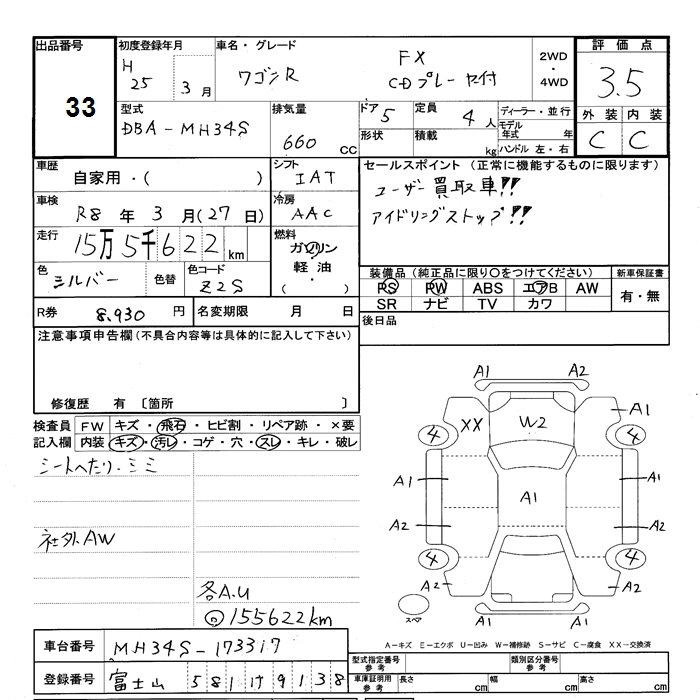 出品番号
33
初度登録年月
H 25 3 月
車名・グレード
ワゴンR FX
CDプレーヤ付
2WD
・
4WD
評価点
3.5
外装 内装
C C
型式
DBA-MH34S
排気量
660 CC
ドア 5
定員 4 人
ディーラー・並行
モデル年式 年
形状
積載 kg
ハンドル 左・右
車歴
自家用・( )
シフト
IAT
セールスポイント (正常に機能するものに限ります)
ユーザー買取車!!
アイドリングストップ!!
車検
R8 年 3 月(27 日)
冷房
AAC
走行
15万5千622 km
燃料
ガソリン
軽油・
( ・ )
色
シルバー
色替
色コード
Z2S
装備品(純正品に限り○をつけてください)
PS PW ABS エアB AW
SR ナビ TV カワ
新車保証書
有・無
R券 8.930 円
名変期限 月 日
後日品
注意事項申告欄(不具合内容等は具体的に記入して下さい)
修復歴 有〔箇所 〕
検査員 FW キズ・飛石・ヒビ割・リペア跡・×要
記入欄 内装 キズ・汚レ・コゲ・穴・スレ・キレ・破レ
シートへたり・シミ
社外AW
各A.U
155622km
A1 A2
XX W2 A1
4 4
A1 A1 A1
A2 A2
4 4
A2 A2
スペア A1
A-キズ E-エクボ U-凹み W-補修跡 S-サビ C-腐食 XX-交換済
車台番号 MH34S-173317
登録番号 富士山 581 け 9138
型式指定番号 参考
類別区分番号 参考
車庫証明用 参考
長さ cm 幅 cm 高さ cm